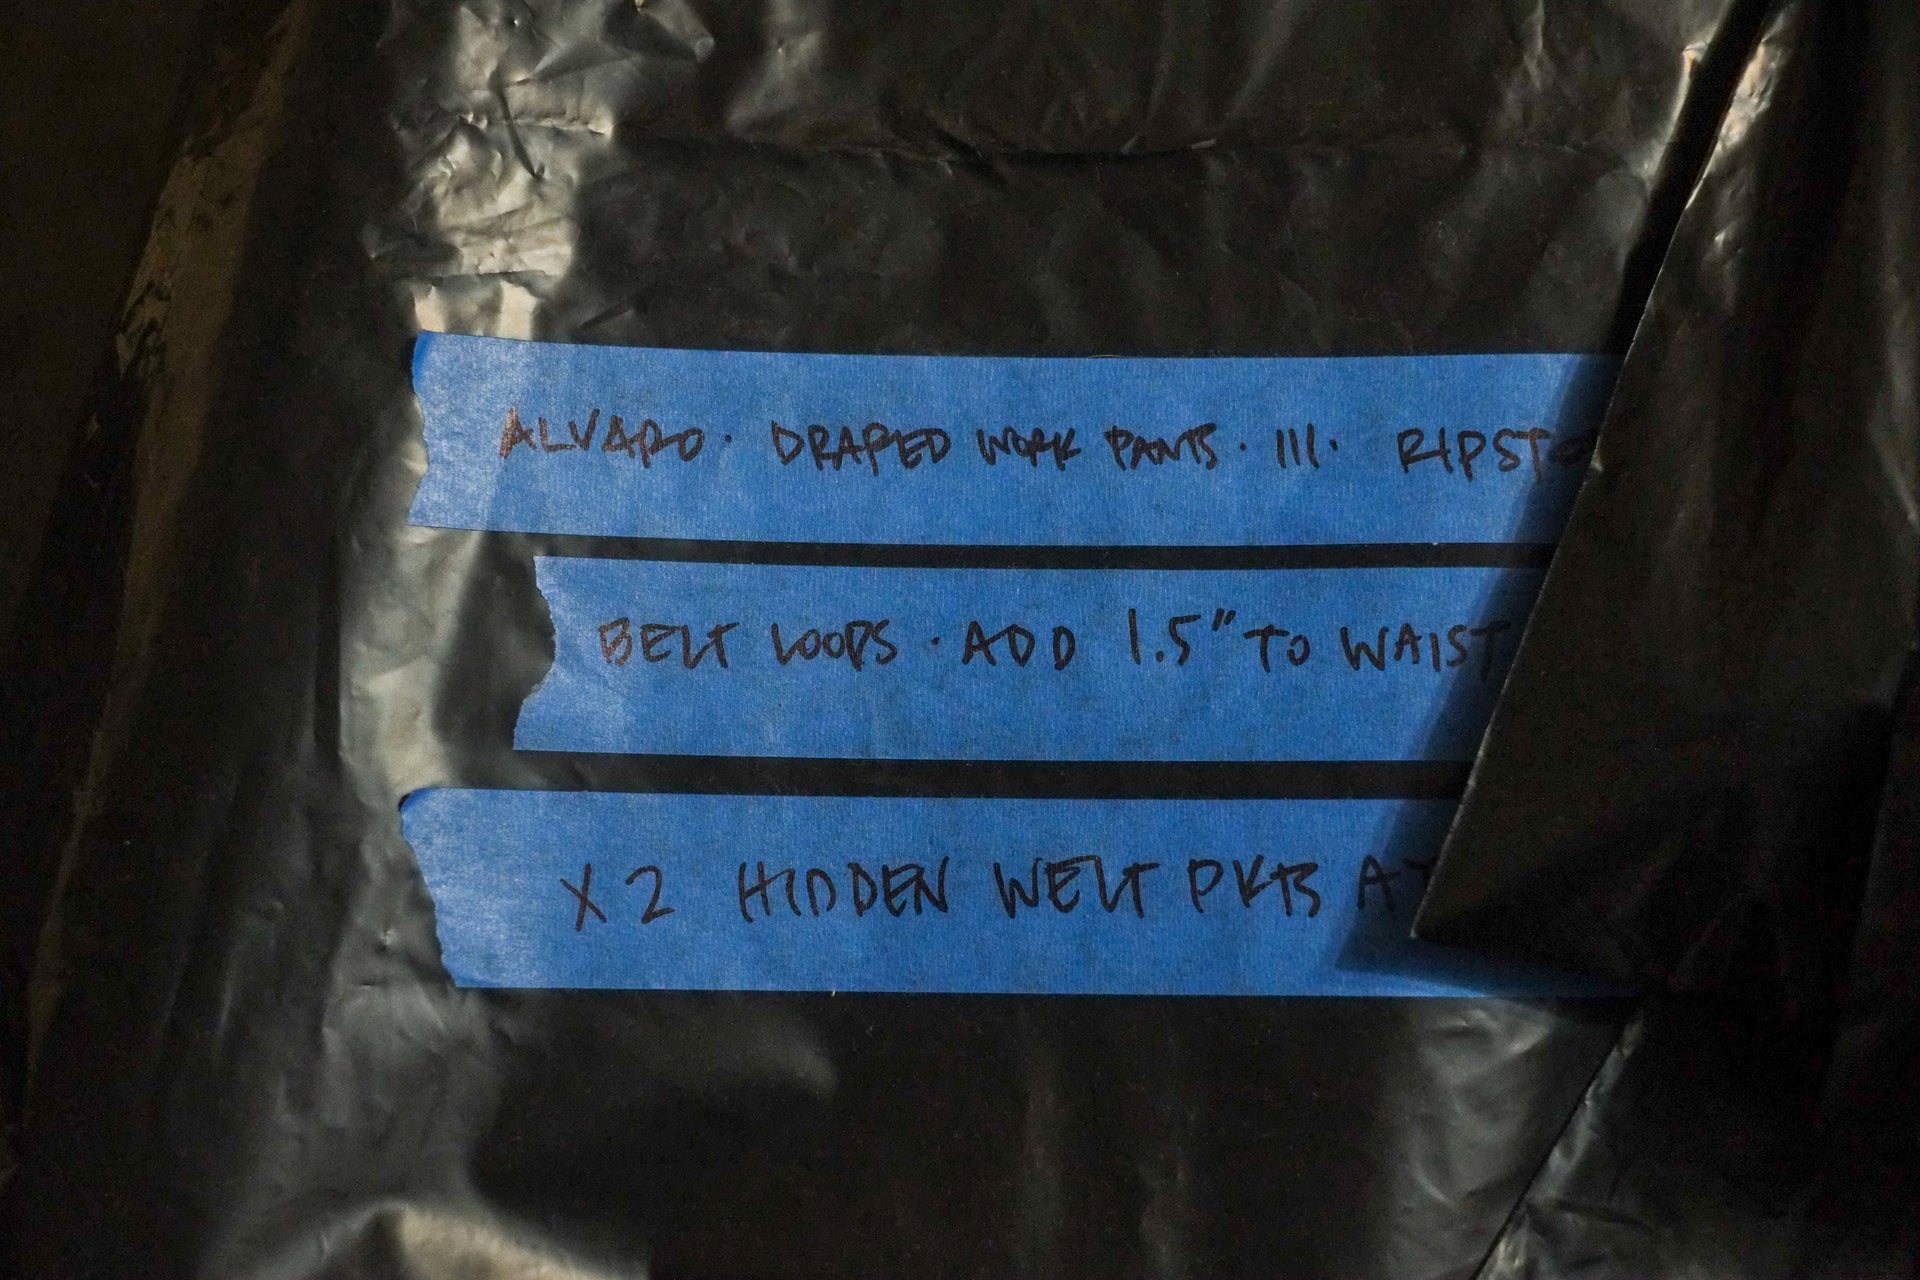 ALVARO · DRAPED WORK PANTS · III · RIPSTO
BELT LOOPS · ADD 1.5" TO WAIST
X2 HIDDEN WELT PKTS AT